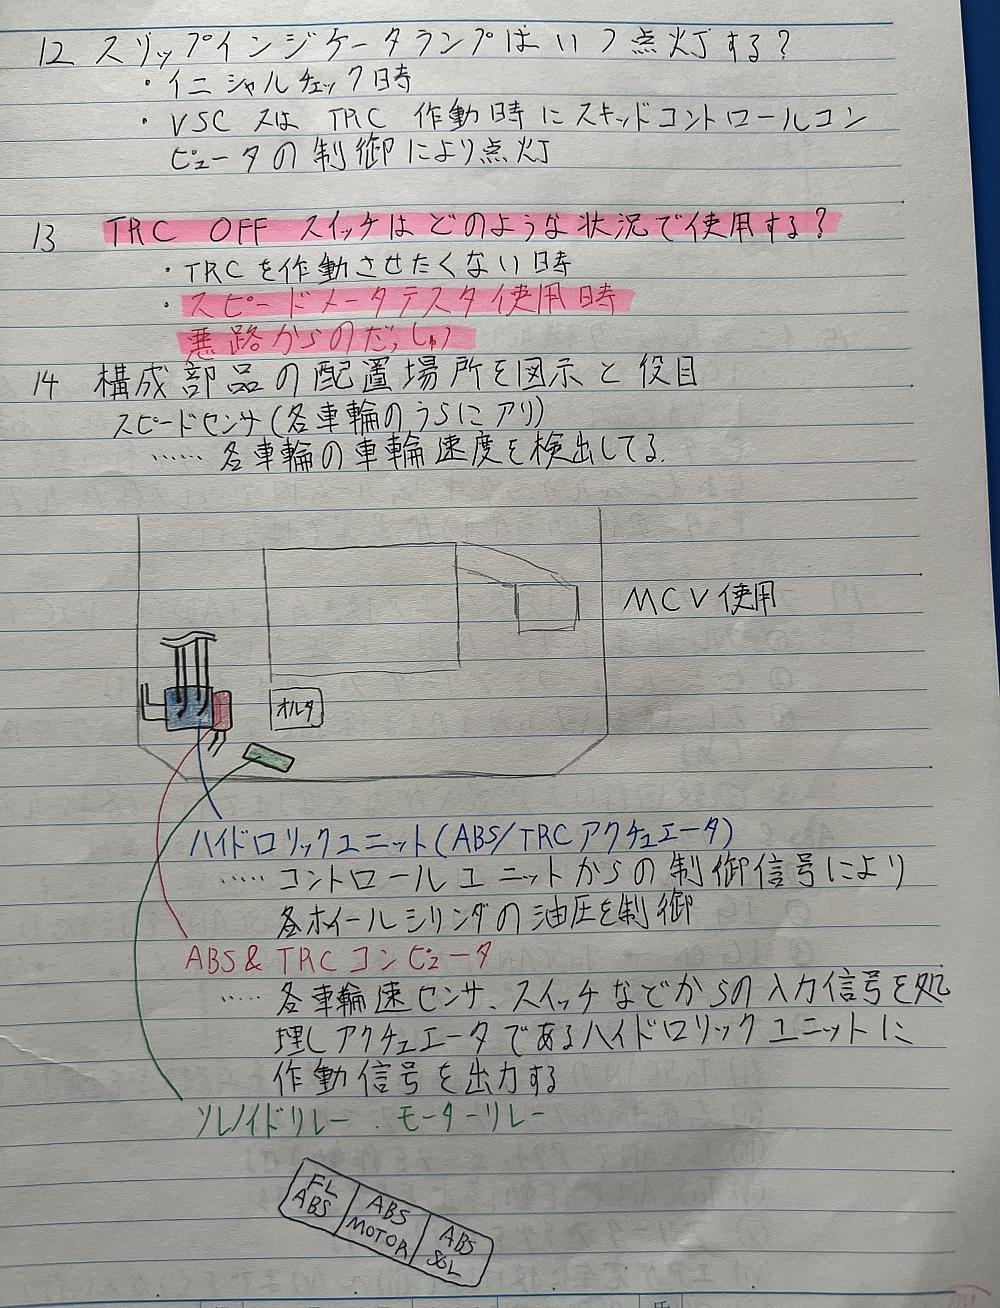 12 スリップインジケータランプはいつ点灯する?
・イニシャルチェック時
・VSC又は TRC 作動時にスキッドコントロールコン
ピュータの制御により点灯
13 TRC OFF スイッチはどのような状況で使用する?
・TRCを作動させたくない時
・スピードメータテスタ使用時
悪路からのだっしゅつ
14 構成部品の配置場所を図示と役目
スピードセンサ(各車輪のうらにアリ)
…… 各車輪の車輪速度を検出してる.
MCV使用
オルタ
ハイドロリックユニット(ABS/TRCアクチュエータ)
…… コントロールユニットからの制御信号により
各ホイールシリンダの油圧を制御
ABS&TRCコンピュータ
…… 各車輪速センサ、スイッチなどからの入力信号を処
理しアクチュエータであるハイドロリックユニットに
作動信号を出力する
ソレノイドリレー . モーターリレー
FL ABS
ABS MOTOR
ABS SOL